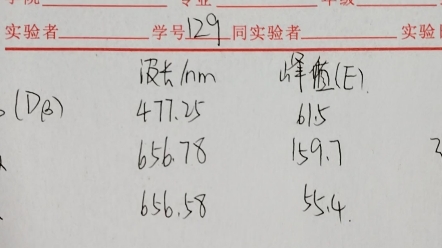 实验者 学号129 同实验者 实验日
波长/nm 峰值(E)
(Dβ) 477.25 61.5
656.78 159.7
656.58 55.4